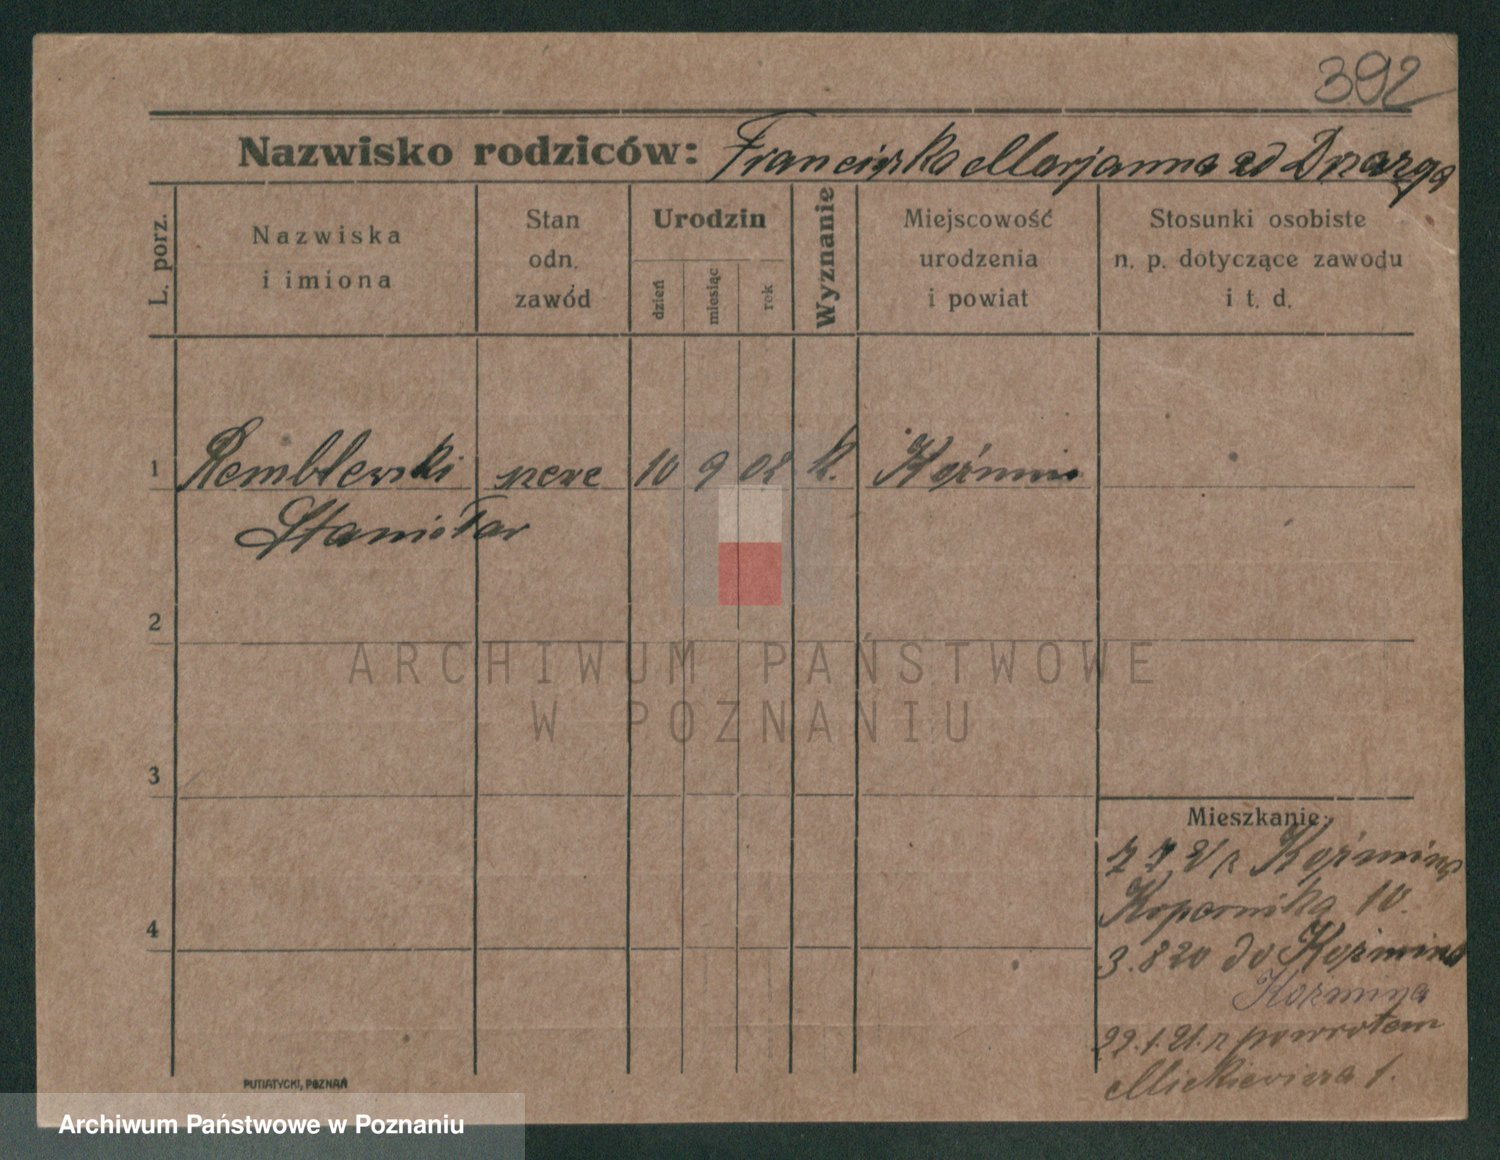 392
Nazwisko rodziców: Franciszka Marjanna
L. porz.
Nazwiska
i imiona
Stan
odn.
zawód
Urodzin
dzień
miesiąc
rok
Wyznanie
Miejscowość
urodzenia
i powiat
Stosunki osobiste
n. p. dotyczące zawodu
i t. d.
1 Remblewski 10 9 02 k. Koźmin
2
ARCHIWUM PAŃSTWOWE
W POZNANIU
3
Mieszkanie:
Kopernika 10.
4
3.8 20 do Koźmina
Kozmina
22.1.21. z powrotem
Mickiewicza 1.
PUTIATYCKI, POZNAŃ
Archiwum Państwowe w Poznaniu